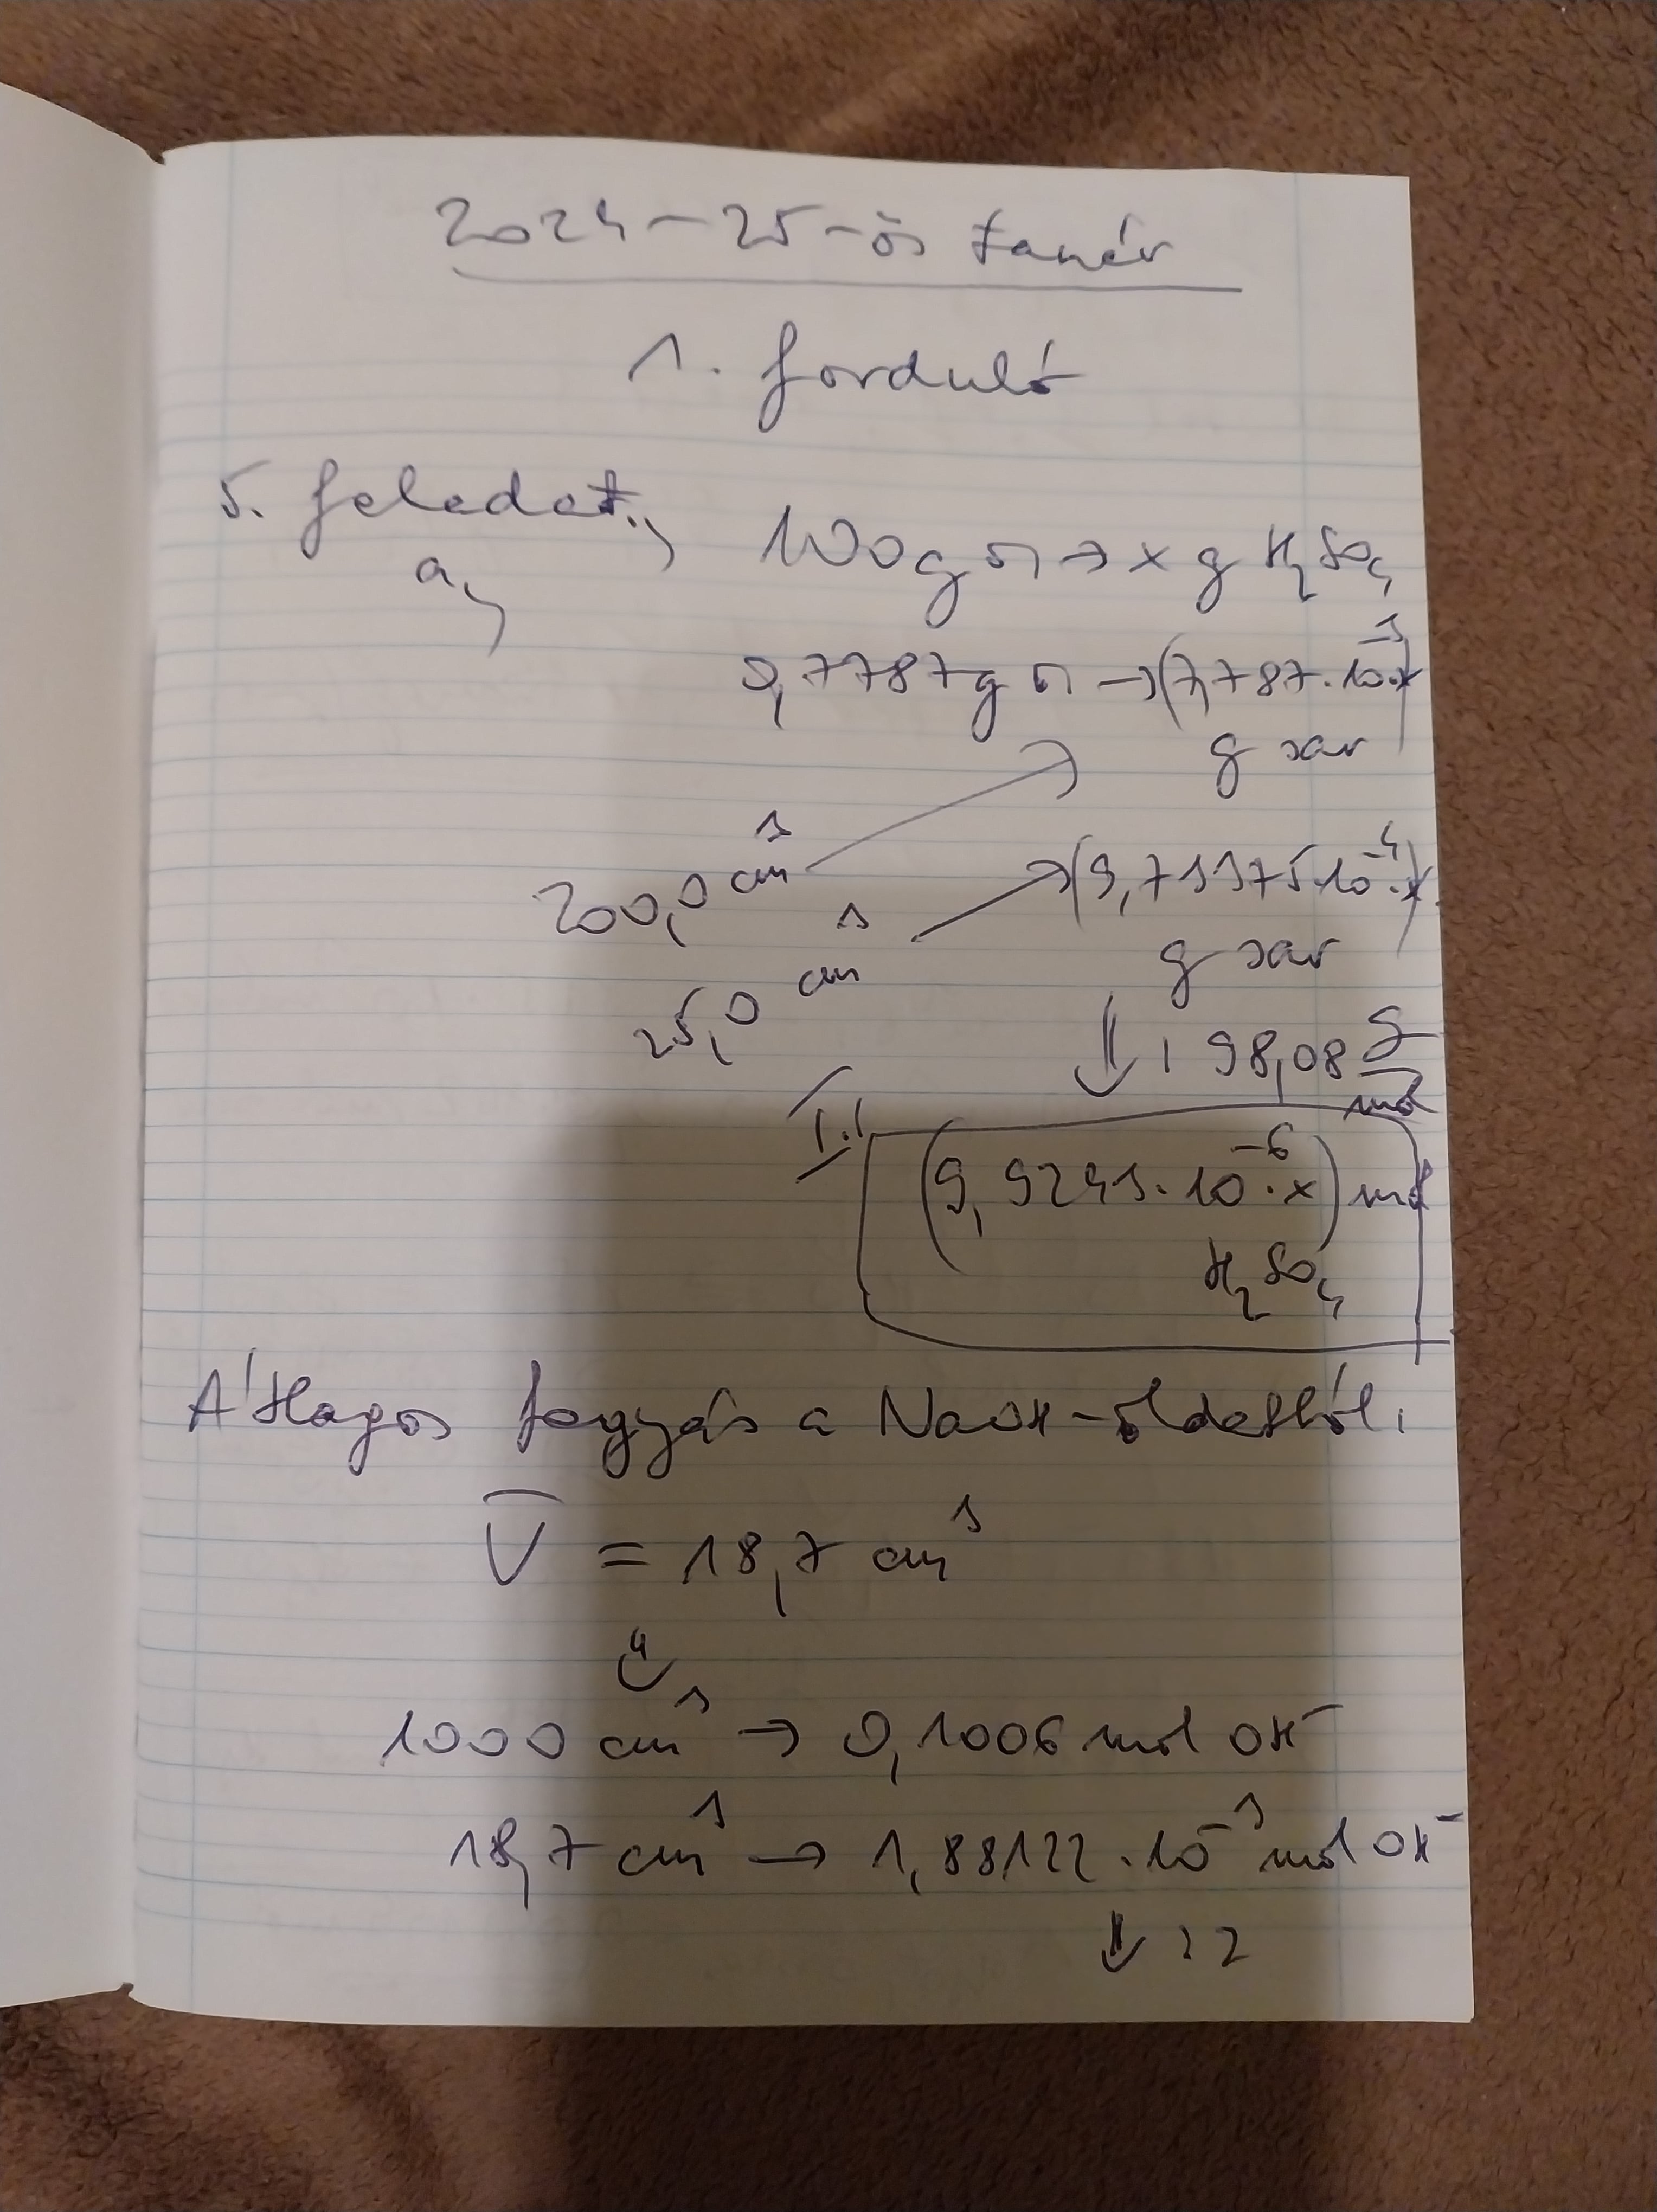 2024-25-ös tanév
1. forduló
5. feladat:,
a,
100 g o → x g H₂SO₄
0,7787 g o → (7,787·10⁻³·x)
g sav
200,0 cm³
(9,73375·10⁻⁴·x)
g sav
25,0 cm³
↓ : 98,08 g/mol
I.:
(9,9243·10⁻⁶·x) mol
H₂SO₄
Átlagos fogyás a NaOH-oldatból:
V̅ = 18,7 cm³
↓
1000 cm³ → 0,1006 mol OH⁻
18,7 cm³ → 1,88122·10⁻³ mol OH⁻
↓ : 2